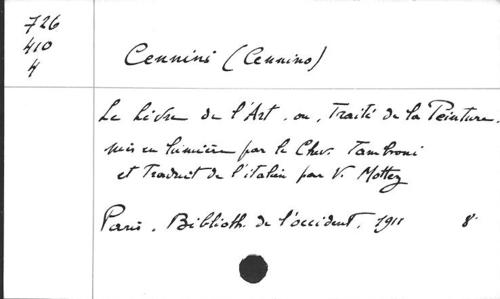 726
410
4
Cennini (Cennino)
Le Livre de l'Art, ou, Traité de la Peinture.
mis en lumière par le Chev. Tambroni
et Traduit de l'italien par V. Mottez
Paris. Biblioth. de l'occident. 1911 8°